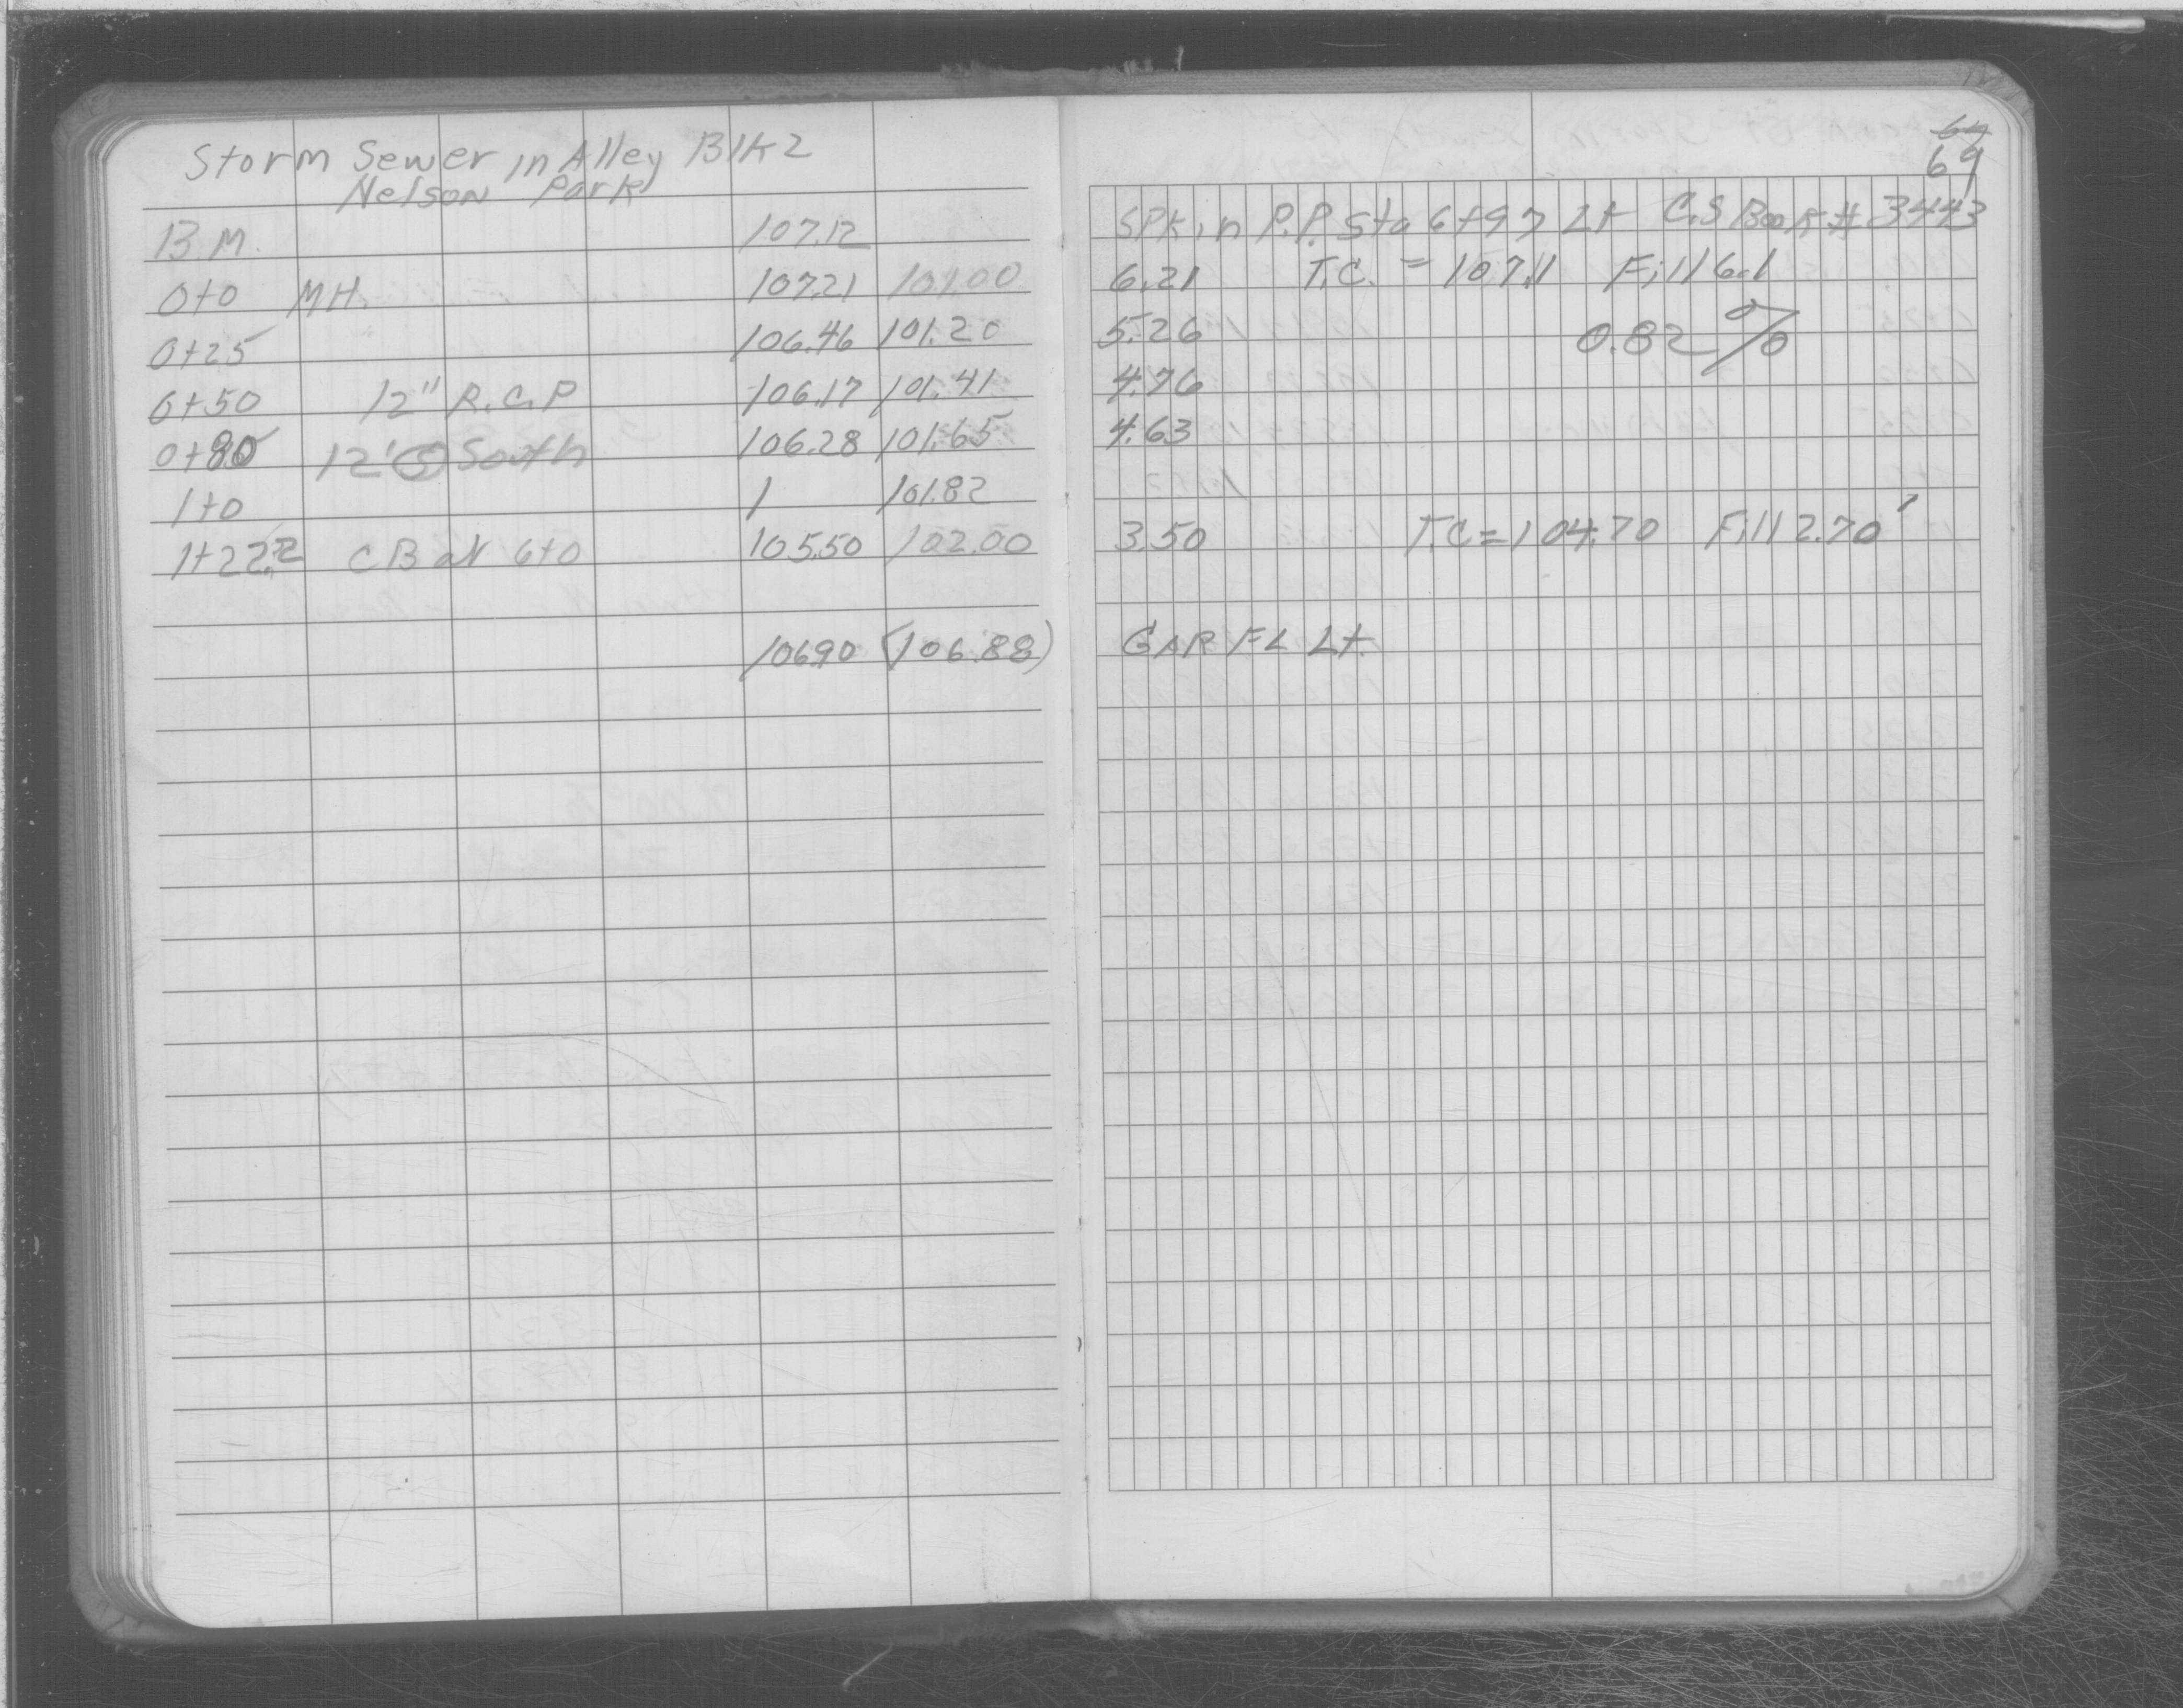 Storm Sewer in Alley Blk 2
Nelson Park
B.M. 107.12
0+0 MH. 107.21 101.00
0+25 106.46 101.20
0+50 12" R.C.P 106.17 101.41
0+80 12' South 106.28 101.65
1+0 / 101.82
1+22.2 CB at 6+0 105.50 102.00
106.90 (106.88)
69
SPK in P.P. Sta 6+97 Lt C.S Book # 3443
6.21 T.C. = 107.11 Fill 6.1
5.26 0.82 %
4.76
4.63
3.50 T.C = 104.70 Fill 2.70'
GAR FL Lt.